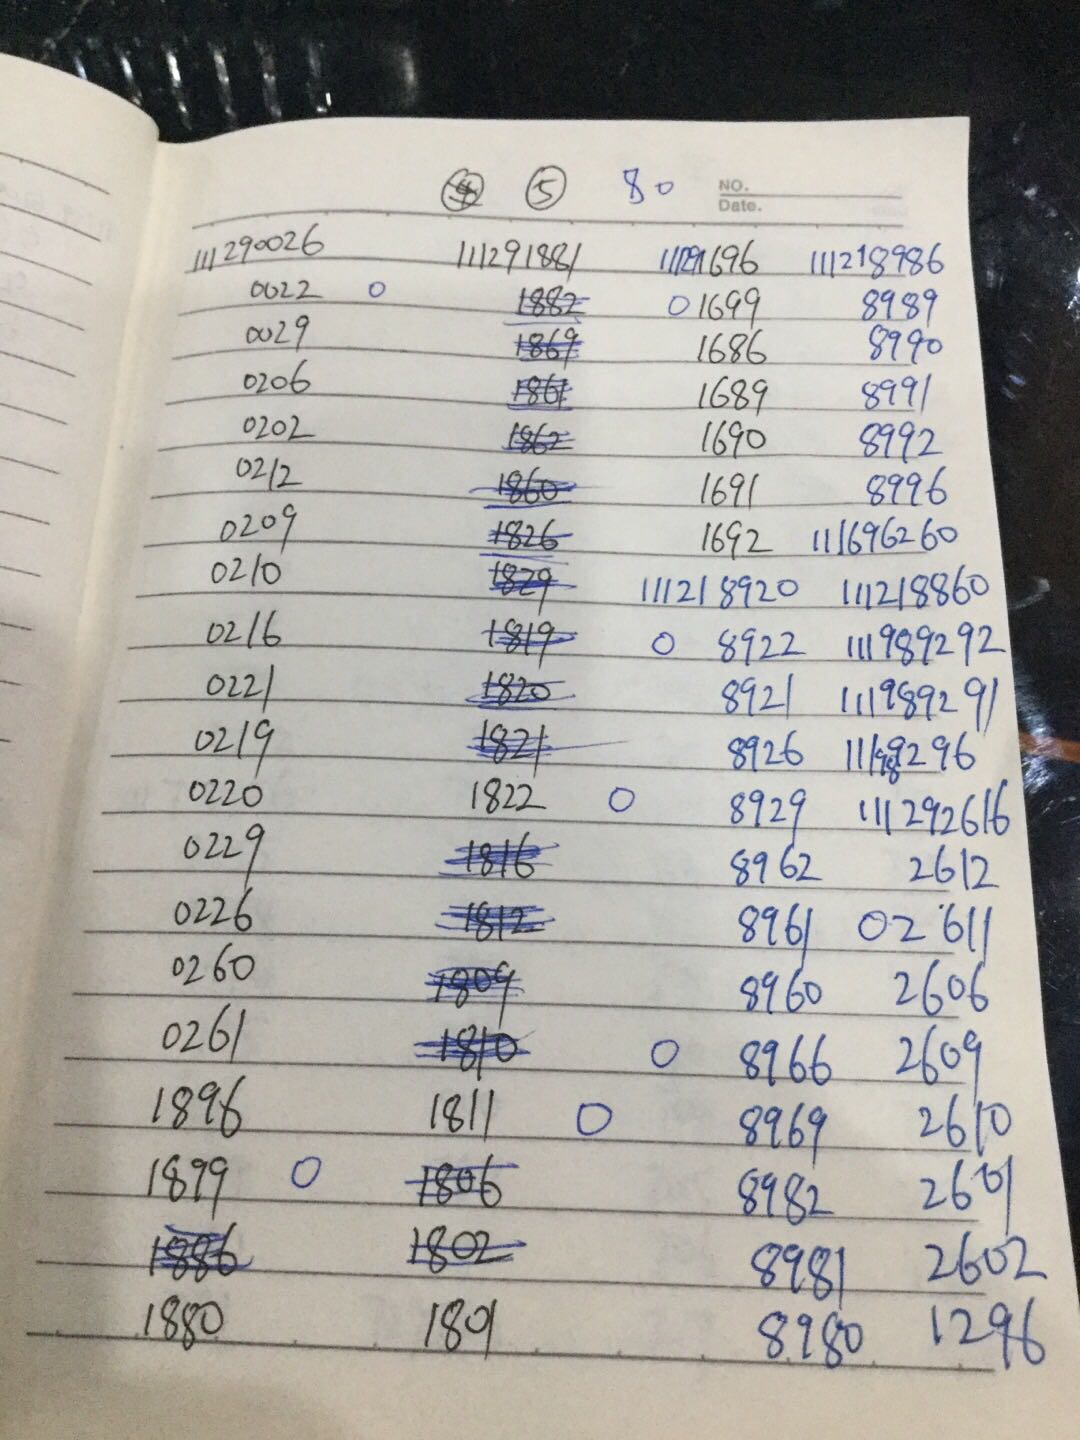 ⑤ 80 NO.
Date.
111290026 111291881 111291696 111218986
0022 O 1882 O 1699 8989
0029 1869 1686 8990
0206 1861 1689 8991
0202 1862 1690 8992
0212 1860 1691 8996
0209 1826 1692 111696260
0210 1829 111218920 111218860
0216 1819 O 8922 111989292
0221 1820 8921 111989291
0219 1821 8926 111989296
0220 1822 O 8929 111292616
0229 1816 8962 2612
0226 1812 8961 02611
0260 1809 8960 2606
0261 1810 O 8966 2609
1896 1811 O 8969 2610
1899 O 1806 8982 2601
1886 1802 8981 2602
1880 1801 8980 1296